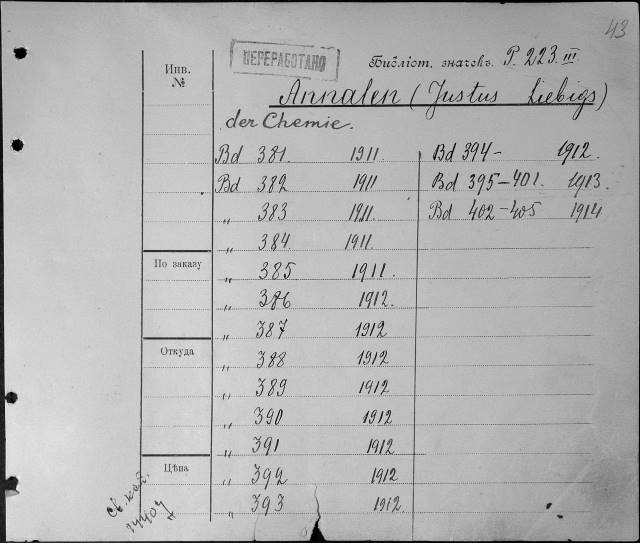 43
ПЕРЕРАБОТАНО
Библіот. значекъ. P. 223. III
Инв. №
Annalen (Justus Liebigs)
der Chemie.
Bd 381 1911. Bd 394 - 1912.
Bd 382 1911 Bd 395-401. 1913.
„ 383 1911. Bd 402-405 1914
„ 384 1911.
По заказу
„ 385 1911.
„ 386 1912.
„ 387 1912
Откуда
„ 388 1912
„ 389 1912
„ 390 1912
„ 391 1912
Цѣна
„ 392 1912
„ 393 1912.